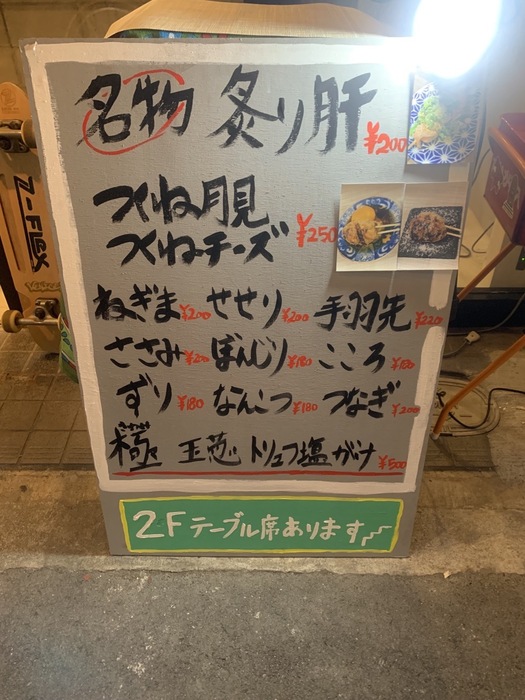 名物 炙り肝 ¥200
つくね月見
つくねチーズ ¥250
ねぎま ¥200 せせり ¥200 手羽先 ¥220
ささみ ¥200 ぼんじり ¥180 こころ ¥180
ずり ¥180 なんこつ ¥180 つなぎ ¥200
極 玉葱 トリュフ塩 がけ ¥500
2Fテーブル席あります
Z-FLEX